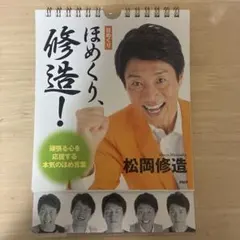 日めくり
ほめくり、
修造!
頑張る心を
応援する
本気のほめ言葉
松岡修造
PHP